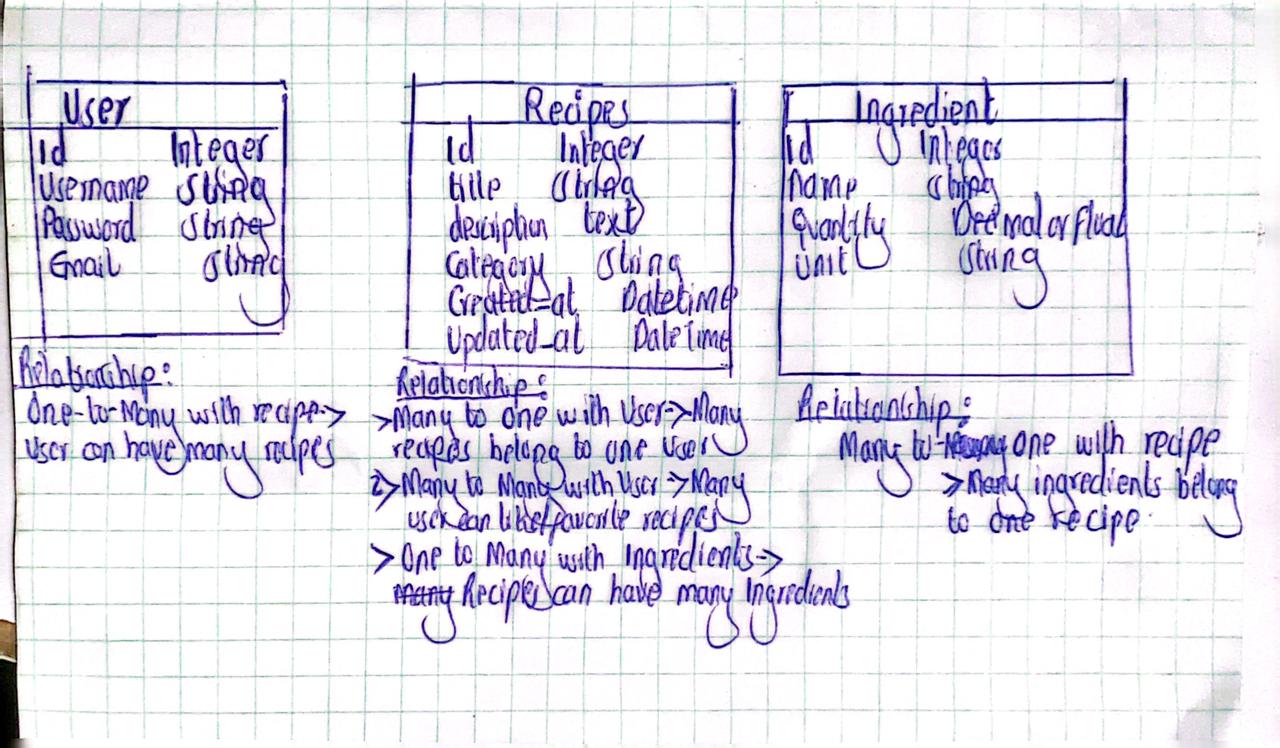 User
id Integer
Username String
Password String
Email String
Relationship:
One-to-Many with recipe->
User can have many recipes
Recipes
id Integer
title String
description text
Category String
Created_at Datetime
Updated_at DateTime
Relationship:
>Many to one with User->Many
recipes belong to one user
2>Many to Many with User->Many
user can like/favorite recipes
>One to Many with Ingredients->
many Recipes can have many Ingredients
Ingredient
id Integer
name String
Quantity Decimal or Float
Unit String
Relationship:
Many to one with recipe
>Many ingredients belong
to one recipe.